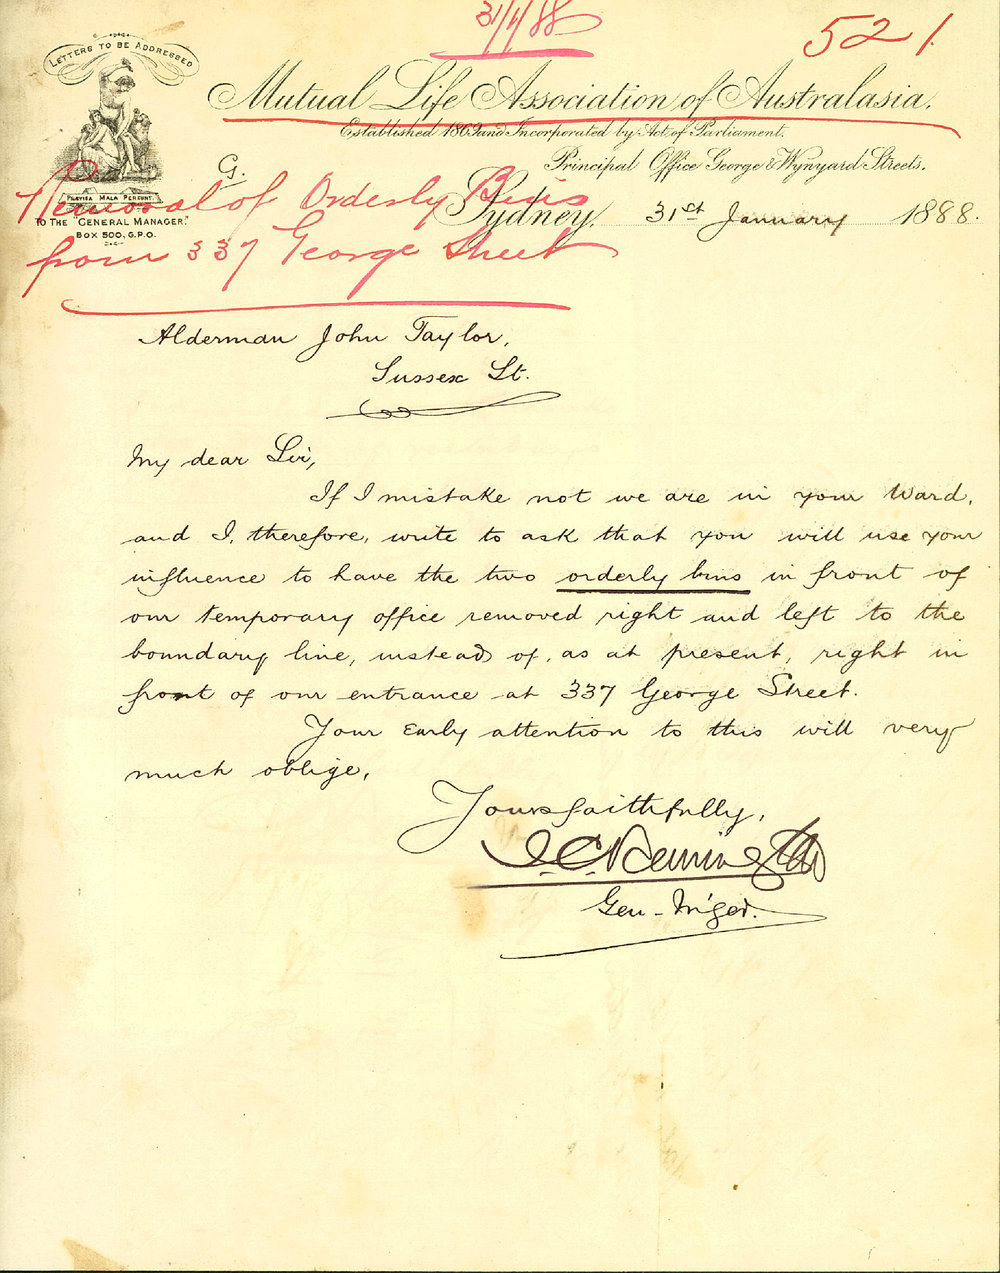 31/1/88
521
LETTERS TO BE ADDRESSED
Mutual Life Association of Australasia.
Established 1869 and Incorporated by Act of Parliament.
Principal Office George & Wynyard Streets.
G.
PRAEVISA MALA PEREUNT.
TO THE "GENERAL MANAGER."
BOX 500, G.P.O.
Removal of Orderly Bins
from 337 George Street
Sydney, 31st January 1888.
Alderman John Taylor,
Sussex St.
My dear Sir,
If I mistake not we are in your Ward,
and I, therefore, write to ask that you will use your
influence to have the two orderly bins in front of
our temporary office removed right and left to the
boundary line, instead of, as at present, right in
front of our entrance at 337 George Street.
Your Early attention to this will very
much oblige,
Yours faithfully,
Gen - M'ger.